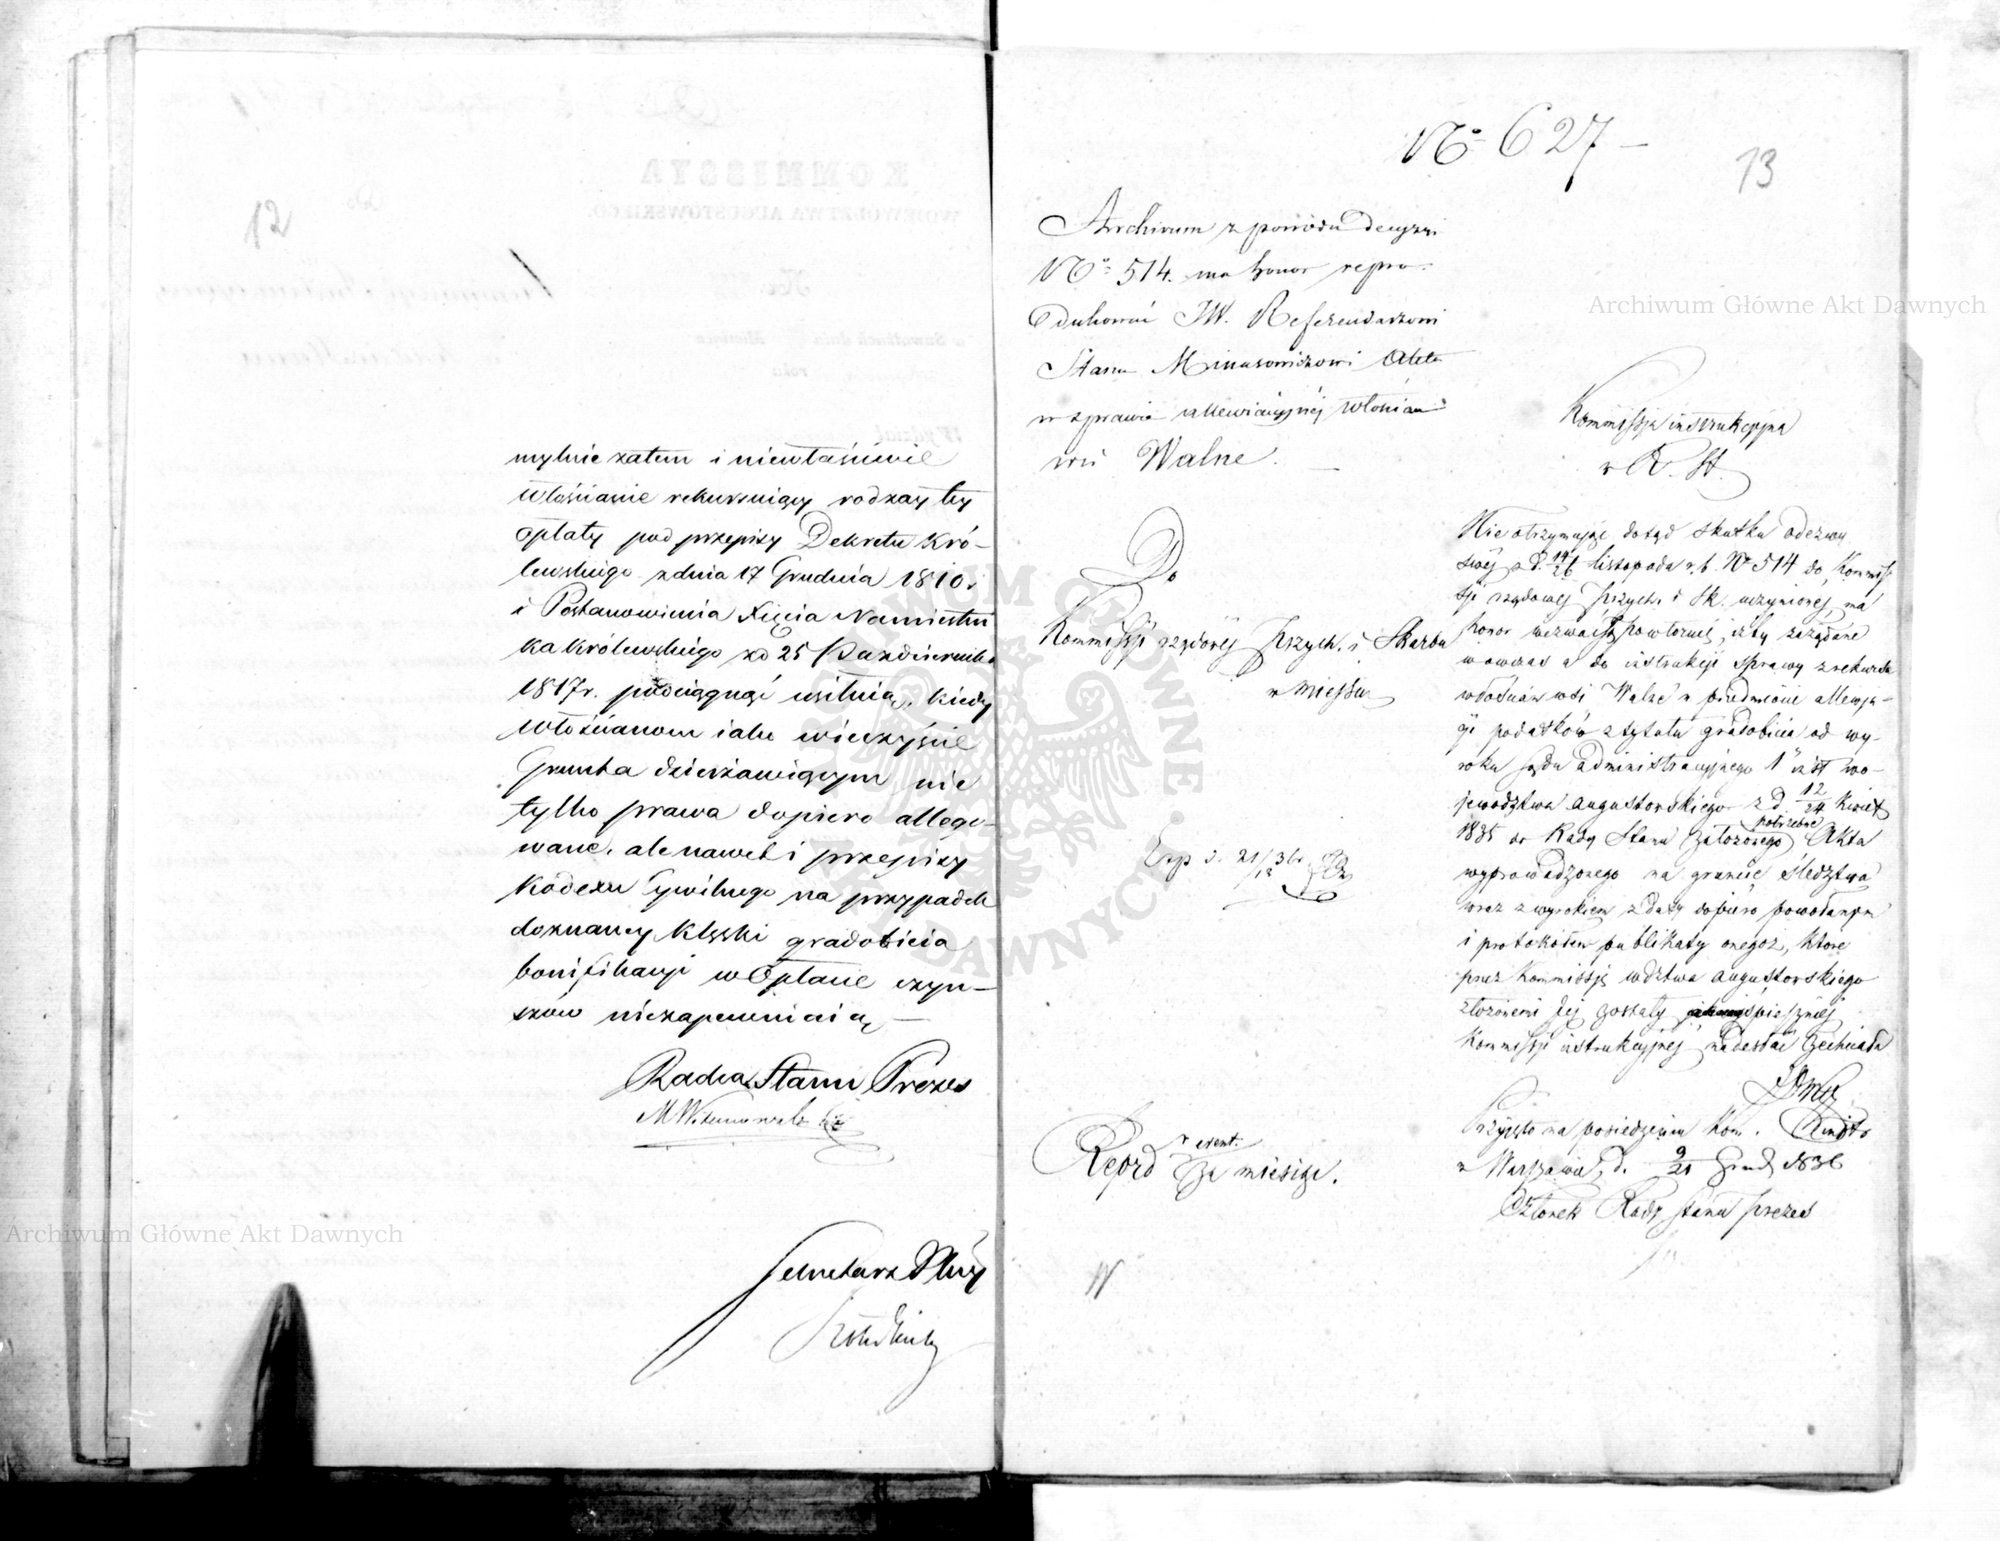 12
mylnie zatem i niewłaściwie
włościanie rekursuiący rodzay tey
opłaty pod przepisy Dekretu Kró-
lewskiego z dnia 17 Grudnia 1810 i
i Postanowienia Xięcia Namiestni
ka Królewskiego zd 25 Października
1817r. podciągnąć usiłuią, kiedy
włościanom iako wieczyście
Grunta dzierżawiącym nie
tylko prawa dopiero allego-
wane, ale nawet i przepisy
Kodexu Cywilnego na przypadek
doznaney klęski gradobicia
bonifikacji w Opłacie czyn-
szów niezapewniaią, —
Radca Stanu Prezes
Sekretarz Jlny
No 627 —
13
Archivum z powodu Decyzyi
No 514. ma honor repro-
dukować JW. Referendarzowi
Stanu Minasowiczowi Akta
w sprawie allewiacyjnéj włościan
wsi Walne. —
Do
Kommissji rządowéj Przych. i Skarbu
w Miejscu
Exp d. 21/12 36
Reprod w event.
za miesiąc.
Kommissja instrukcyjna
w R. St.
Nie otrzymując dotąd skutku odezwy
swéj z d. 14/26 listopada r. b. No 514 do Kommis
sji rządowej Przych. i Sk. uczynionej, ma
honor wezwać Ją powtórnie, iżby zażądane
wówczas a do instrukcji sprawy z rekursu
włościan wsi Walne w przedmiocie allewja-
cji podatków z tytułu gradobicia od wy-
roku sądu administracyjnego 1 inst wo-
jewództwa augustowskiego z d. 12/24 Kwiet
1835 do Rady Stanu założonego potrzebne Akta
wyprowadzonego na gruncie śledztwa
wraz z wyrokiem z daty dopiero powołanym
i protokółem publikaty onegoż, które
przez Kommissję wdztwa augustowskiego
złożonemi Jej zostały śpieszniéj
Kommissji instrukcyjnéj nadesłać zechciała
Przyjęto na posiedzeniu Kom.
w Warszawie d. 9/21 Grud 1836
Członek Rady Stanu prezes
Archiwum Główne Akt Dawnych
Archiwum Główne Akt Dawnych
ARCHIWUM GŁÓWNE AKT DAWNYCH